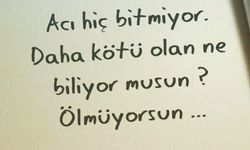 Acı hiç bitmiyor.
Daha kötü olan ne
biliyor musun ?
Ölmüyorsun ...